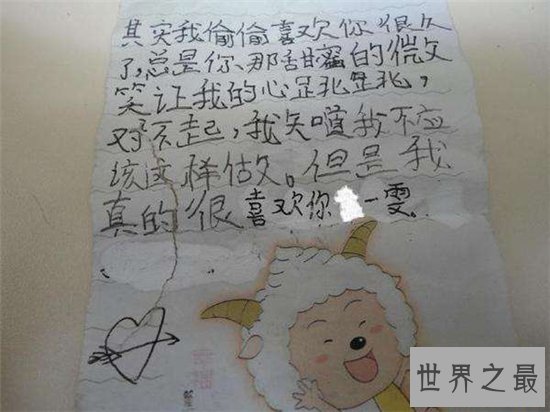 其实我偷偷喜欢你很久
了,总是你、那甜蜜的微文
笑让我的心跳跳,
对不起,我知道我不应
该这样做。但是我
真的很喜欢你一雯.
世界之最